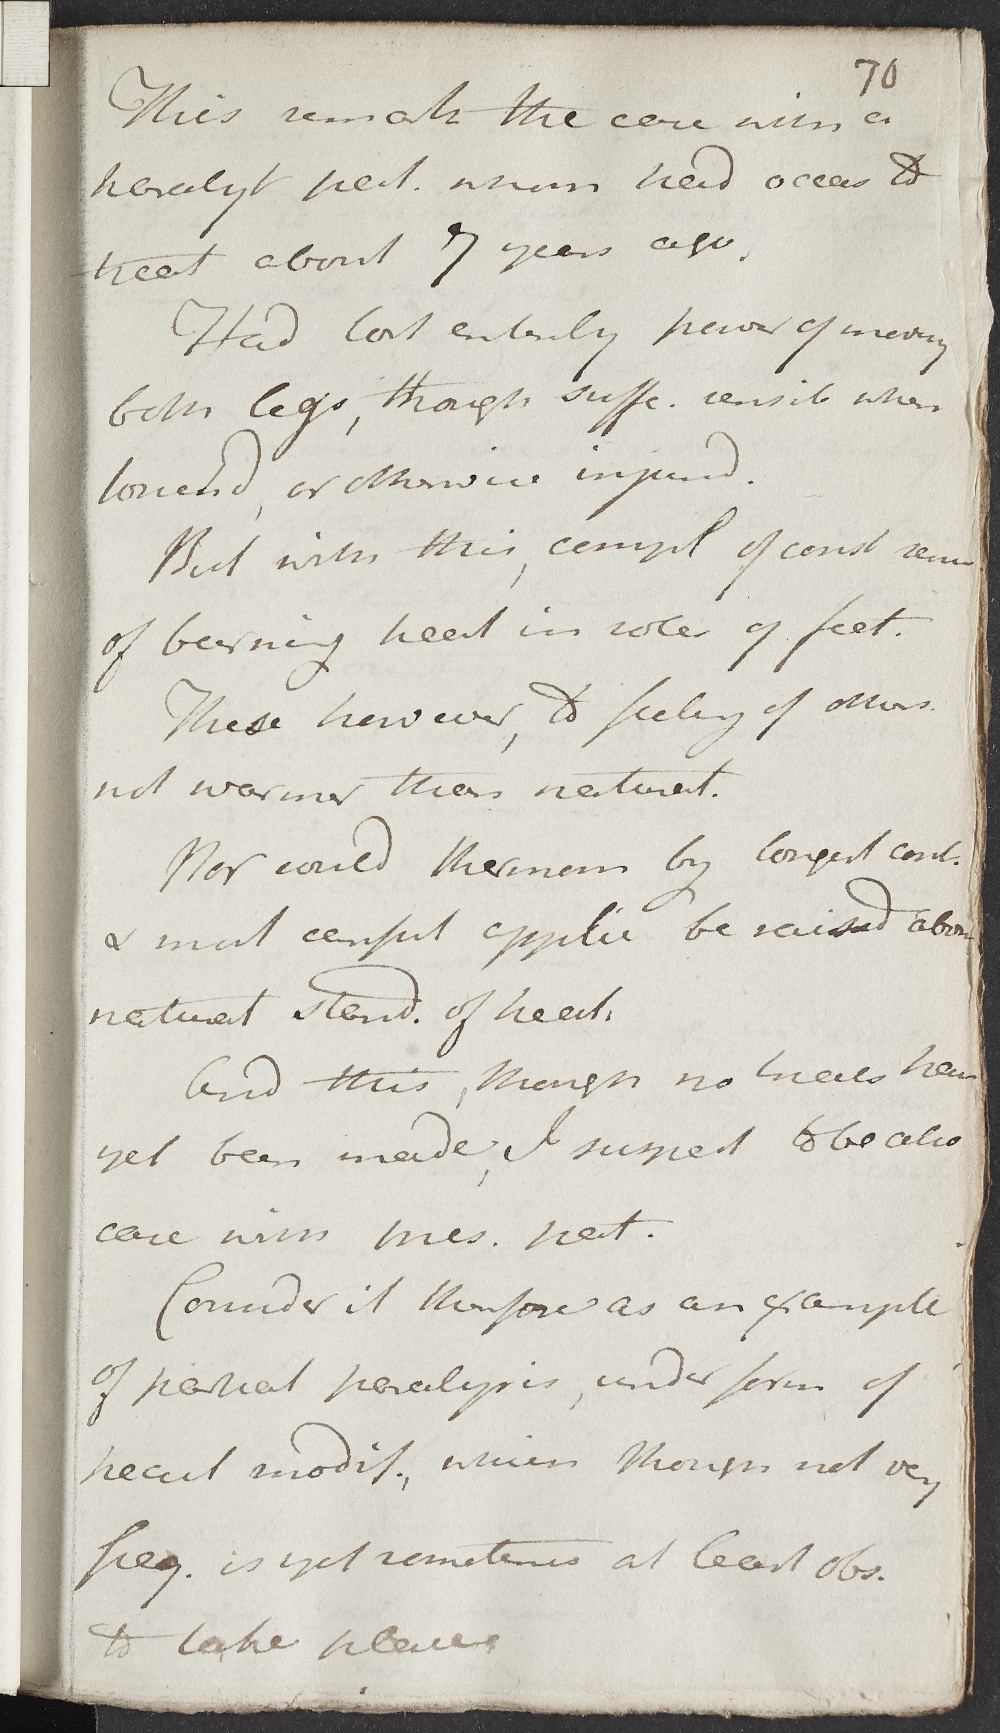 70
This remark the case with a
paralyt pat. whom had occas to
treat about 7 years ago.
Had lost entirely power of moving
both legs, though suffc. sensib when
touched, or otherwise injured.
But with this, compl of const sens
of burning heat in soles of feet.
These however, to feeling of others
not warmer than natural.
Nor could thermom by longest cont.
& most careful applic be raised above
natural stand. of heat.
And this, though no trials have
yet been made, I suspect to be also
case with pres. pat.
Consider it therefore as an example
of partial paralysis, under form of
pecul modif., which though not very
freq. is yet sometimes at least obs.
to take place